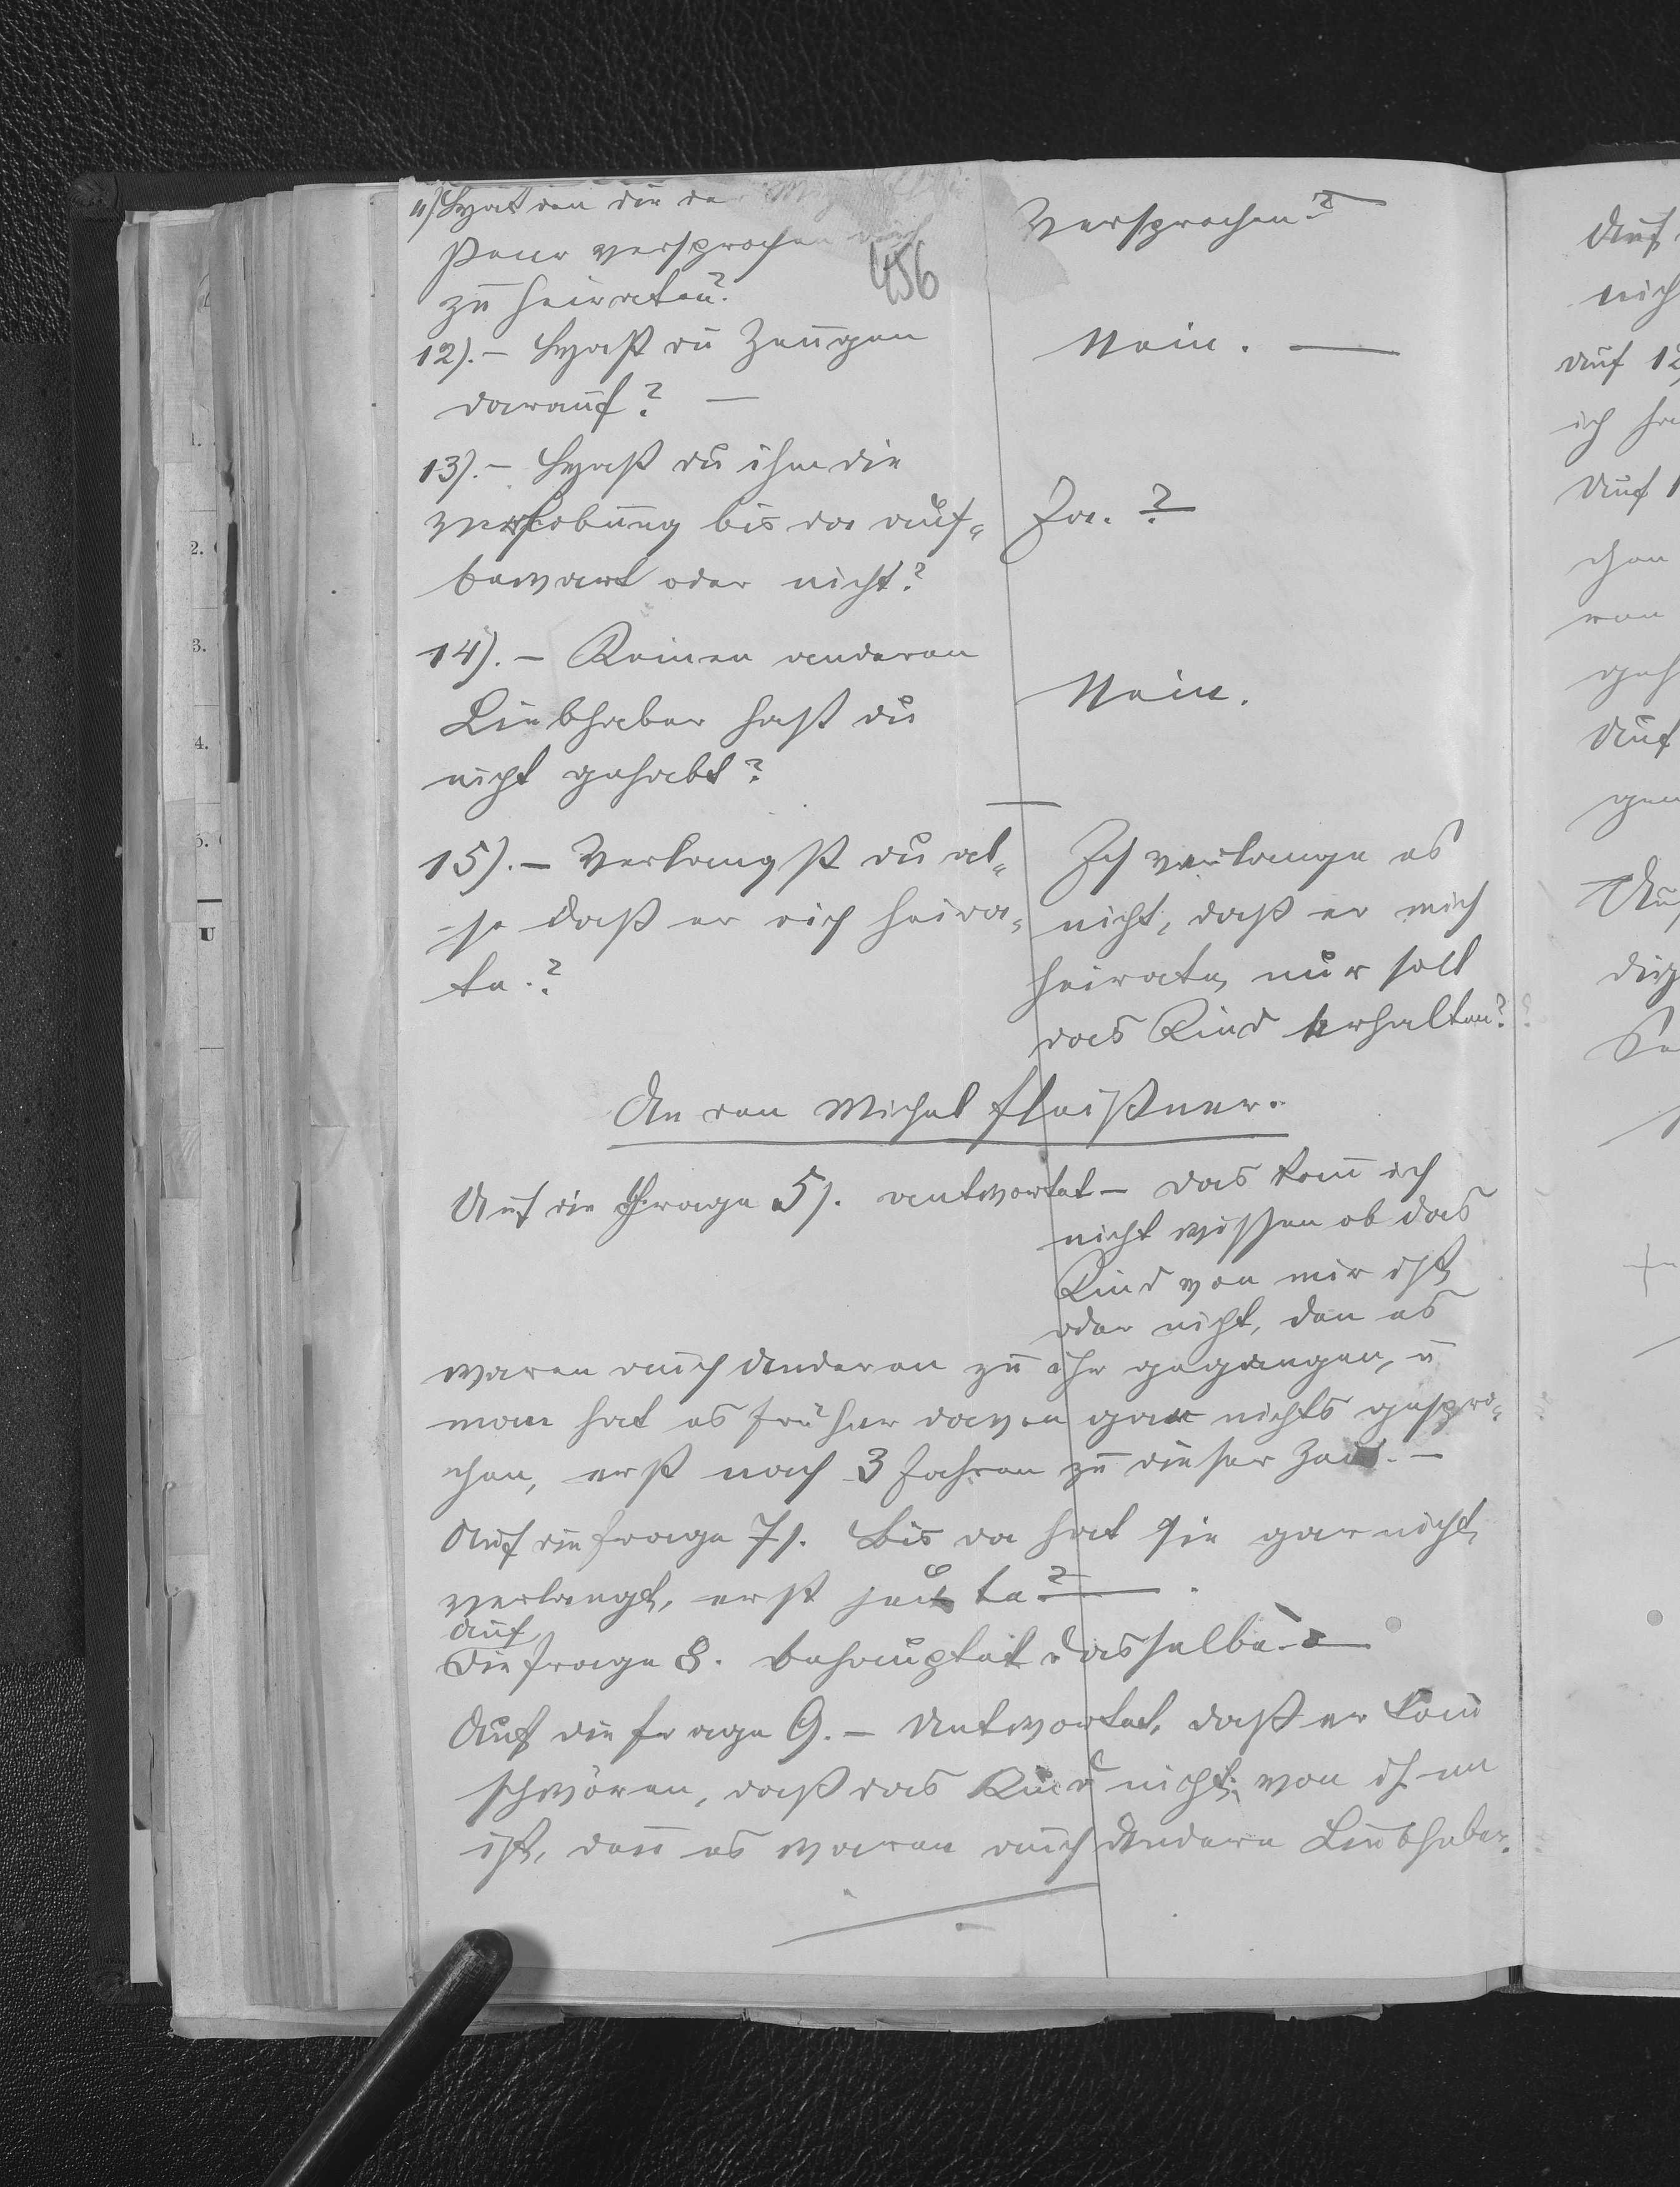 11) Hat den die der
versprochen
zu heiraten?
Versprochen?
456
12).- Hast du Zeugen
darauf? —
Nein. —
13).- Hast du ihm die
verlobung bis da auf-
bewart oder nicht?
Ja. ?
14).- Keinen anderen
Liebhaber hast du
nicht gehabt?
Nein.
15).- Verlangst du al-
-so daß er dich heira-
te.?
Ich verlange es
nicht, daß er mich
heirate, nur soll
das Kind erhalten?
An den Michel Fleißner.
Auf die Frage 5). antwortet - das kan̄ ich
nicht wissen ob das
Kind von mir ist,
oder nicht, den es
waren auch Anderen zu ihr gegangen, ū
man hat es früher davon gar nichts gespro-
chen, erst nach 3 Jahren zu dieser Zeit. -
Auf die Frage 7). Bis da hat sie gar nicht,
verlangt, erst heute? —
auf
Die Frage 8. behauptet dasselbe. —
Auf die Frage 9. - Antwortet, daß er kan̄
schwören, daß das Kind nicht von ihm
ist, dan̄ es waren auch Andere Liebhaber.
Auf
nich
auf 12
ich ha
Auf 1
chen
von
geh
Auf